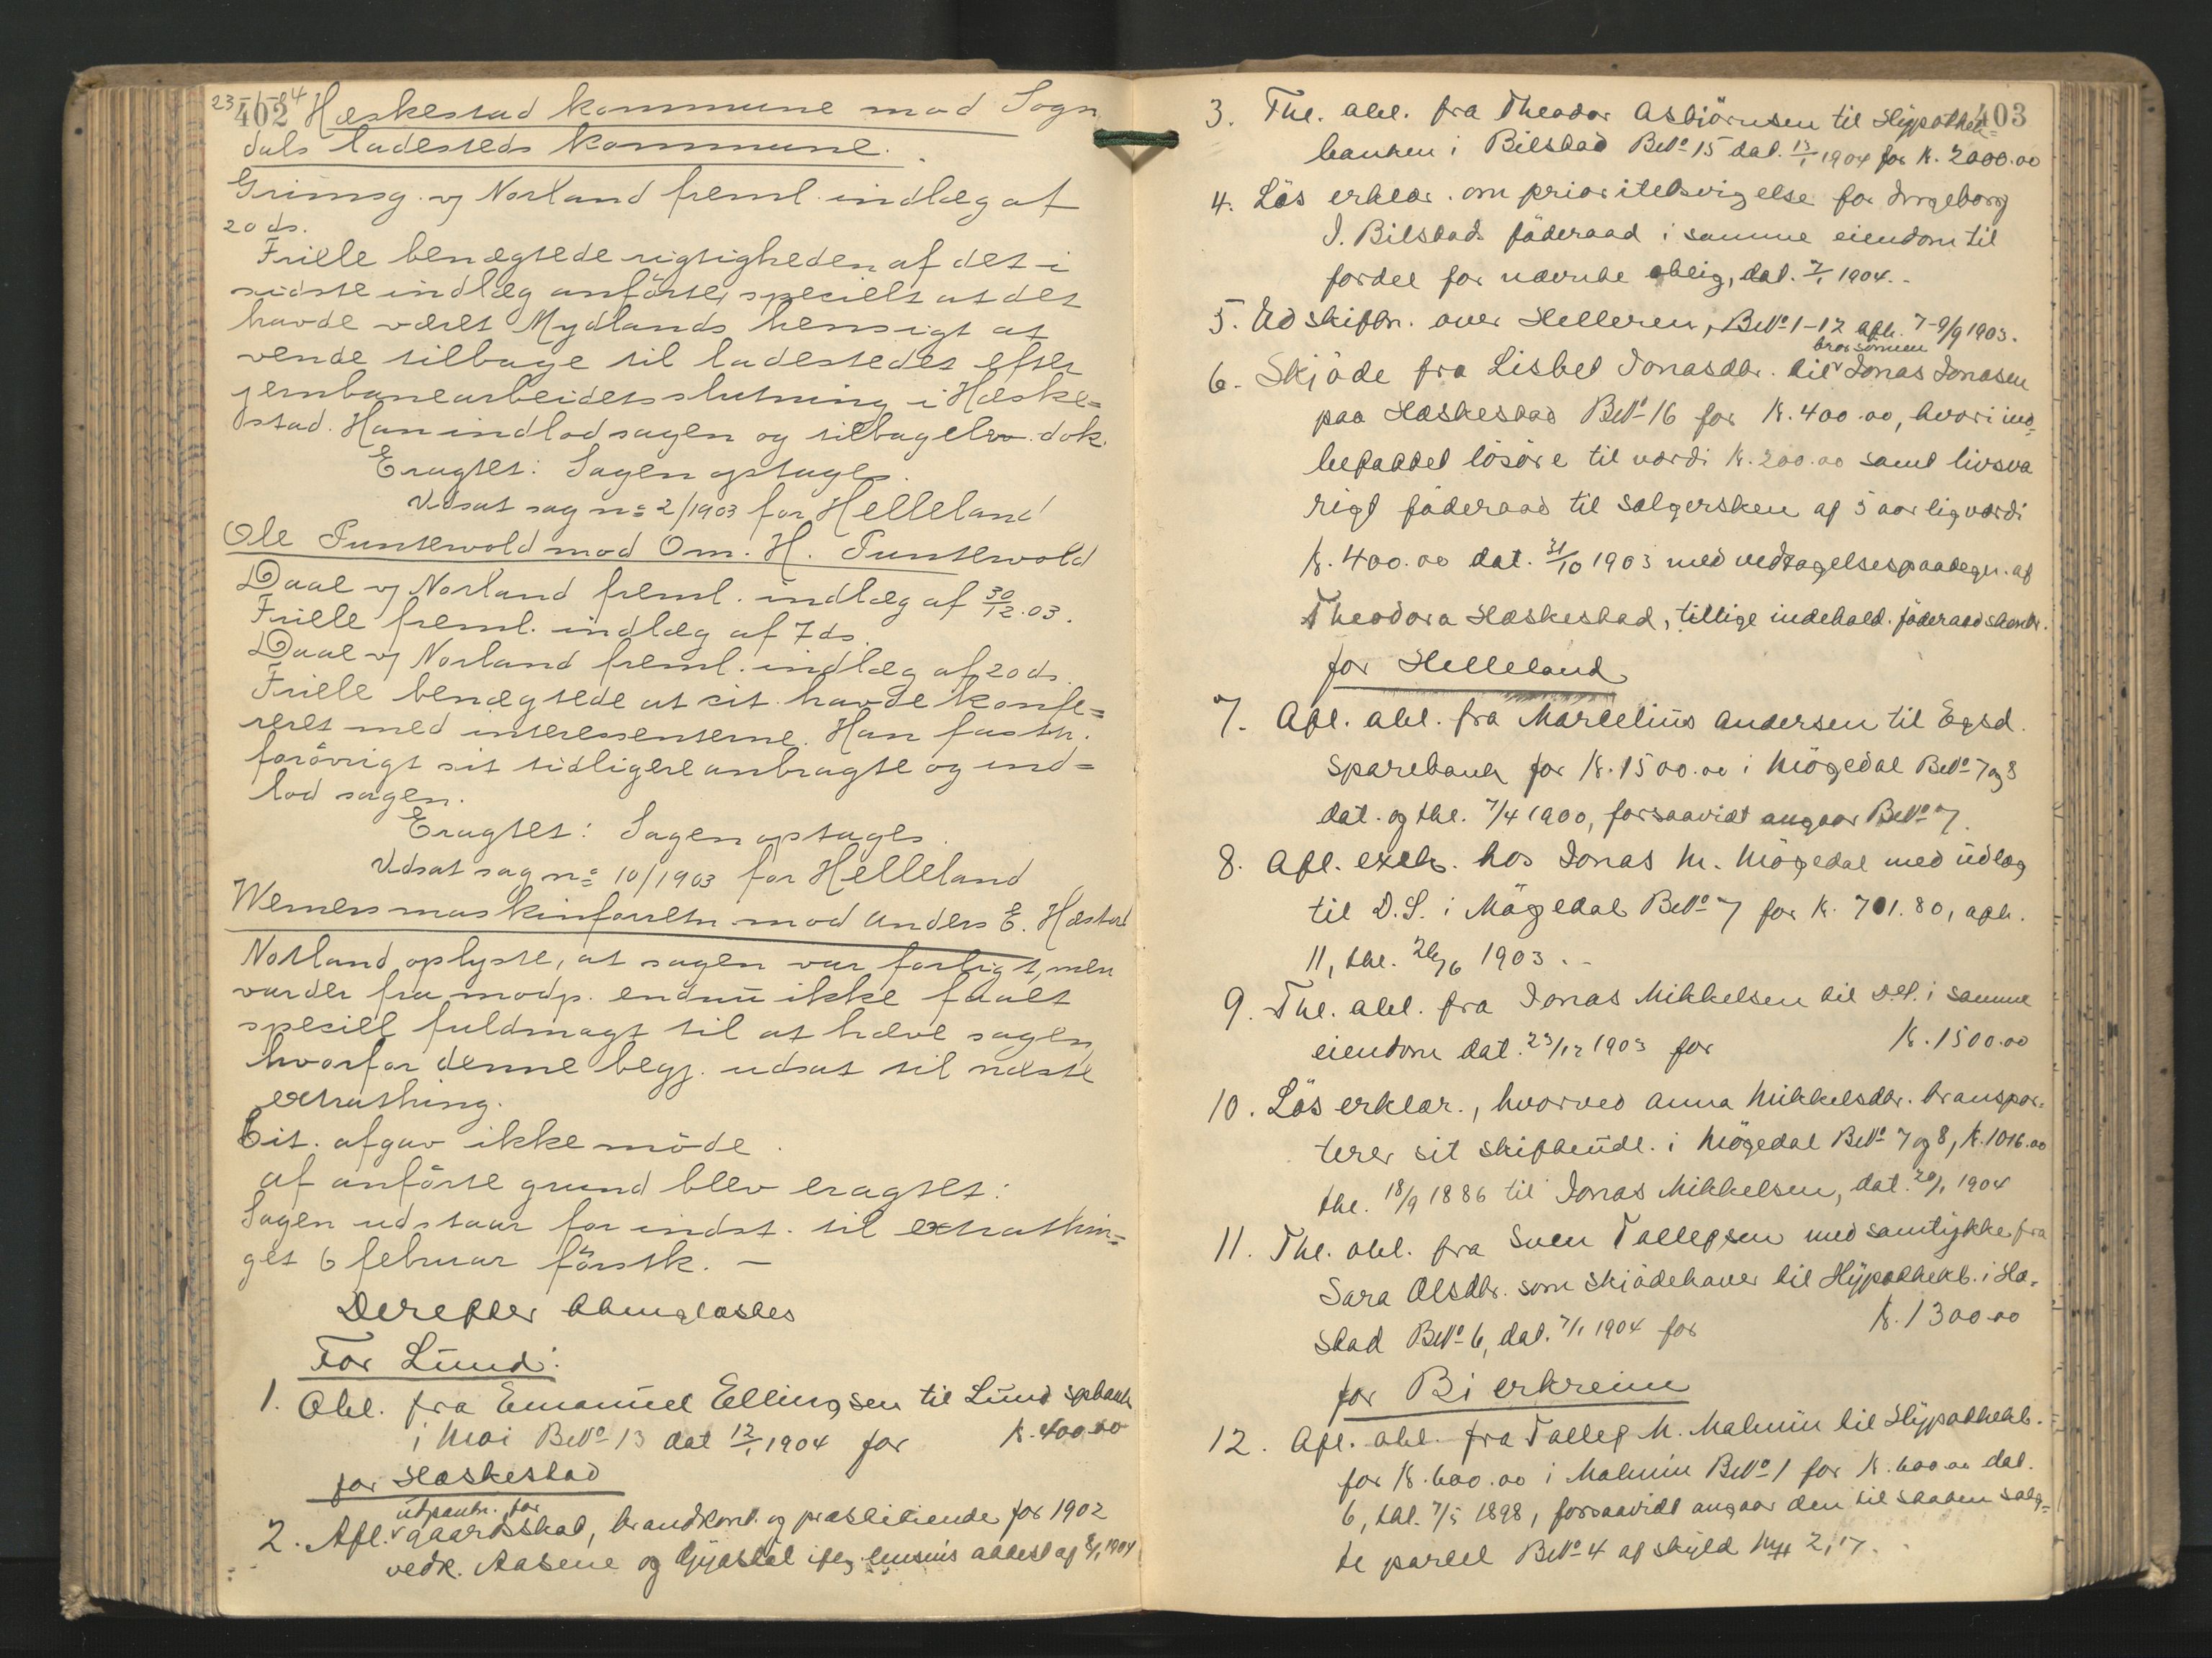 23-1-04
402
Hæskestad kommune mod Sogn
dals ladesteds kommune.
Grimsg. v/ Norland freml. indlæg af
20 ds.
Friele benægtede rigtigheden af det i
sidste indlæg anførte, specielt at det
havde været Mydlands hensigt at
vende tilbage til ladestedet efter
jernbanearbeidets slutning i Hæske=
stad. Han indlod sagen og tilbagelev. dok.
Eragtet: Sagen optages.
Udsat sag no 2/1903 for Helleland
Ole Tuntewold mod Om. H. Tuntewold
Daae v/ Norland freml. indlæg af 30/12.03.
Friele freml. indlæg af 7 ds.
Daae v/ Norland freml. indlæg af 20 ds.
Friele benægtede at cit. havde konfe=
reret med interessenterne. Han fasth.
forövrigt sit tidligere anbragte og ind=
lod sagen.
Eragtet: Sagen optages.
Udsat sag no 10/1903 for Helleland
Werners maskinforretn mod Anders E. Hæstad
Norland oplyste, at sagen var forligt, men
varder fra modp. endnu ikke faaet
speciel fuldmagt til at hæve sagen
hvorfor denne begj. udsat til næste
extrathing.
Cit. afgav ikke möde.
af anförte grund blev eragtet:
Sagen udstaar for indst. til extrathin=
get 6 februar förstk. –
Derefter thinglæstes
For Lund:
1. Obl. fra Emanuel Ellingsen til Lund spbank
i Moi BNo 13 dat 12/1 1904 for K. 400.00
for Hæskestad
utpantn. for
2. Afl. gaardskat, brandkont. og præstetiende for 1902
vedk. Aasene og Gyastöl iflg. lensms attest af 8/1 1904
403
3. Thl. obl. fra Theodor Asbjörnsen til Hypothek=
banken i Bilstad BNo 15 dat. 13/1 1904 for K. 2000.00
4. Läs erklær. om prioritetsvigelse for Ingeborg
I. Bilstads föderaad i samme eiendom til
fordel for nævnte oblig, dat. 7/1 1904. -
5. Udskiftn. over Helleren, BNo 1-12 afh. 7-9/9 1903.
brorsønnen
6. Skjöde fra Lisbet Jonasdtr. til Jonas Jonasen
paa Hæskestad BNo 16 for K. 400.00, hvori ind=
befattet lösöre til værdi K. 200.00 samt livsva
rigt föderaad til sælgersken af 5 aarlig værdi
K. 400.00 dat. 31/10 1903 med vedtagelsespaategn. af
Theodora Hæskestad, tillige indehold. föderaadskontr.
for Helleland
7. Afl. obl. fra Marcelius Andersen til Egsd.
Sparebank for K. 1500.00 i Mögedal BNo 7 og 8
dat. og thl. 7/4 1900, forsaavidt angaar BNo 7.
8. Afl. exek. hos Jonas M. Mögedal med udlæg
til D.S. i Mögedal BNo 7 for K. 701.80, afh.
11, thl. 26/6 1903. -
9. Thl. obl. fra Jonas Mikkelsen til D.S. i samme
eiendom dat. 23/12 1903 for K. 1500.00
10. Läs erklær., hvorved Anna Mikkelsdtr. transpor=
terer sit skifteudl. i Mögedal BNo 7 og 8, K. 1016.00
thl. 18/9 1886 til Jonas Mikkelsen, dat. 20/1 1904
11. Thl. obl. fra Sven Tallefsen med samtykke fra
Sara Olsdtr. som skjödehaver til Hypothekb. i Hæ=
stad BNo 6, dat. 7/1 1904 for K. 1300.00
for Bierkreim
12. Afl. obl. fra Tallef M. Malmin til Hypothekb.
for K. 600.00 i Malmin BNo 1 for K. 600.00 dat.
6, thl. 7/5 1898, forsaavidt angaar den til staten solg=
te parcel BNo 4 af skyld Mk 2,17.